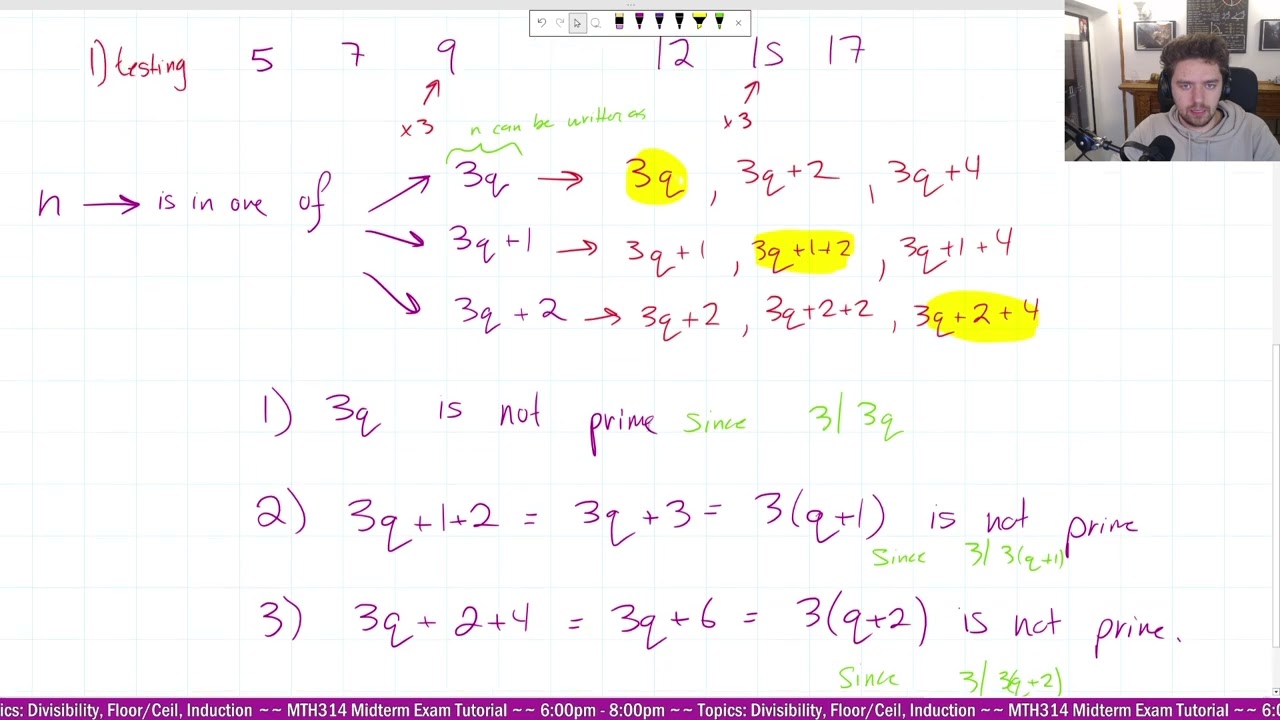 1) testing 5 7 9 12 15 17
x3 x3
n can be written as
n → is in one of
3q → 3q, 3q+2, 3q+4
3q+1 → 3q+1, 3q+1+2, 3q+1+4
3q+2 → 3q+2, 3q+2+2, 3q+2+4
1) 3q is not prime since 3/3q
2) 3q+1+2 = 3q+3 = 3(q+1) is not prime
since 3/3(q+1)
3) 3q+2+4 = 3q+6 = 3(q+2) is not prime.
since 3/3(q+2)
ics: Divisibility, Floor/Ceil, Induction ~~ MTH314 Midterm Exam Tutorial ~~ 6:00pm - 8:00pm ~~ Topics: Divisibility, Floor/Ceil, Induction ~~ MTH314 Midterm Exam Tutorial ~~ 6:0